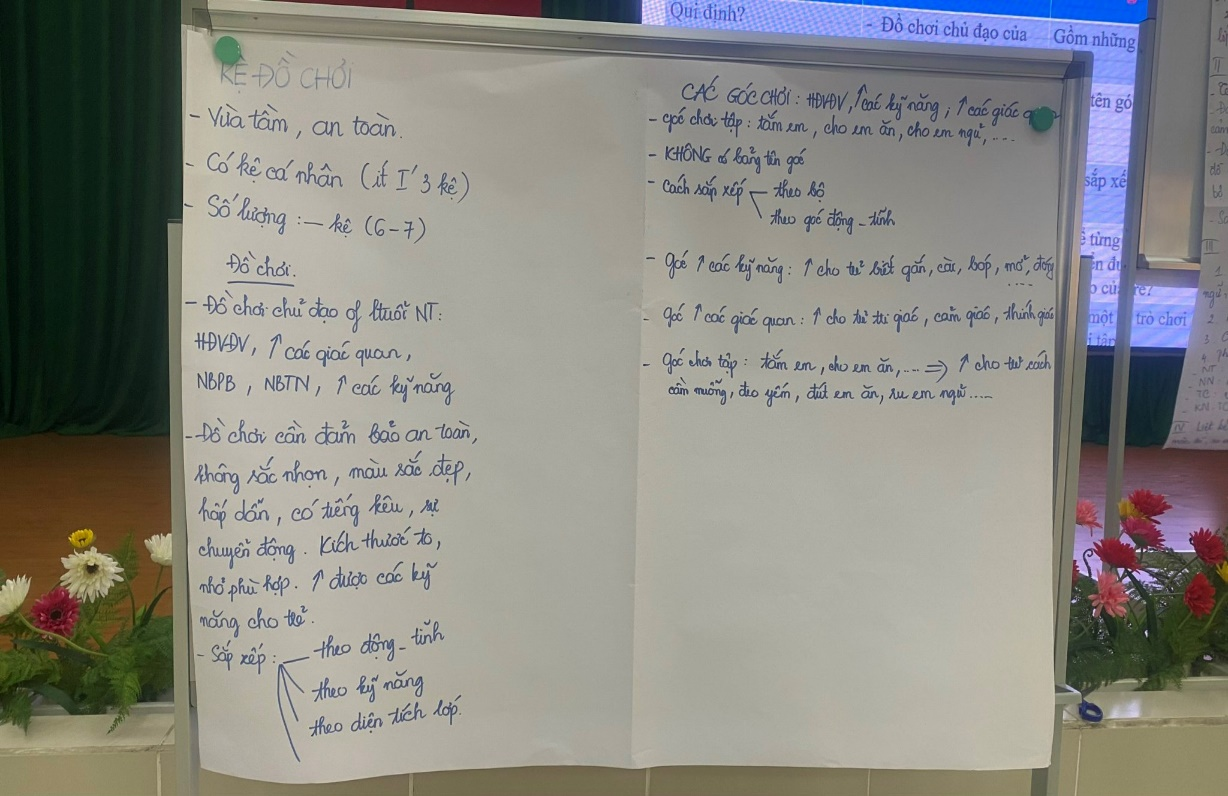 KỆ ĐỒ CHƠI
- Vừa tầm, an toàn.
- Có kệ cá nhân (ít I' 3 kệ)
- Số lượng : — kệ (6-7)
Đồ chơi.
- Đồ chơi chủ đạo of ltuổi NT:
HĐVĐV, ↑ các giác quan,
NBPB, NBTN, ↑ các kỹ năng
- Đồ chơi cần đảm bảo an toàn,
không sắc nhọn, màu sắc đẹp,
hấp dẫn, có tiếng kêu, sự
chuyển động. Kích thước to,
nhỏ phù hợp. ↑ được các kỹ
năng cho trẻ.
- Sắp xếp: theo động - tĩnh
theo kỹ năng
theo diện tích lớp.
CÁC GÓC CHƠI: HĐVĐV, ↑ các kỹ năng; ↑ các giác
- góc chơi tập: tắm em, cho em ăn, cho em ngủ, ....
- KHÔNG có bảng tên góc
- Cách sắp xếp theo bộ
theo góc động - tĩnh
- góc ↑ các kỹ năng: ↑ cho trẻ biết gắn, cài, bóp, mở, đóng
....
- góc ↑ các giác quan: ↑ cho trẻ thị giác, cảm giác, thính giác
- góc chơi tập: tắm em, cho em ăn, .... => ↑ cho trẻ cách
cầm muỗng, đeo yếm, đút em ăn, ru em ngủ .....
Qui định?
- Đồ chơi chủ đạo của
Gồm những
tên gó
sắp xế
từng
trò chơi
một